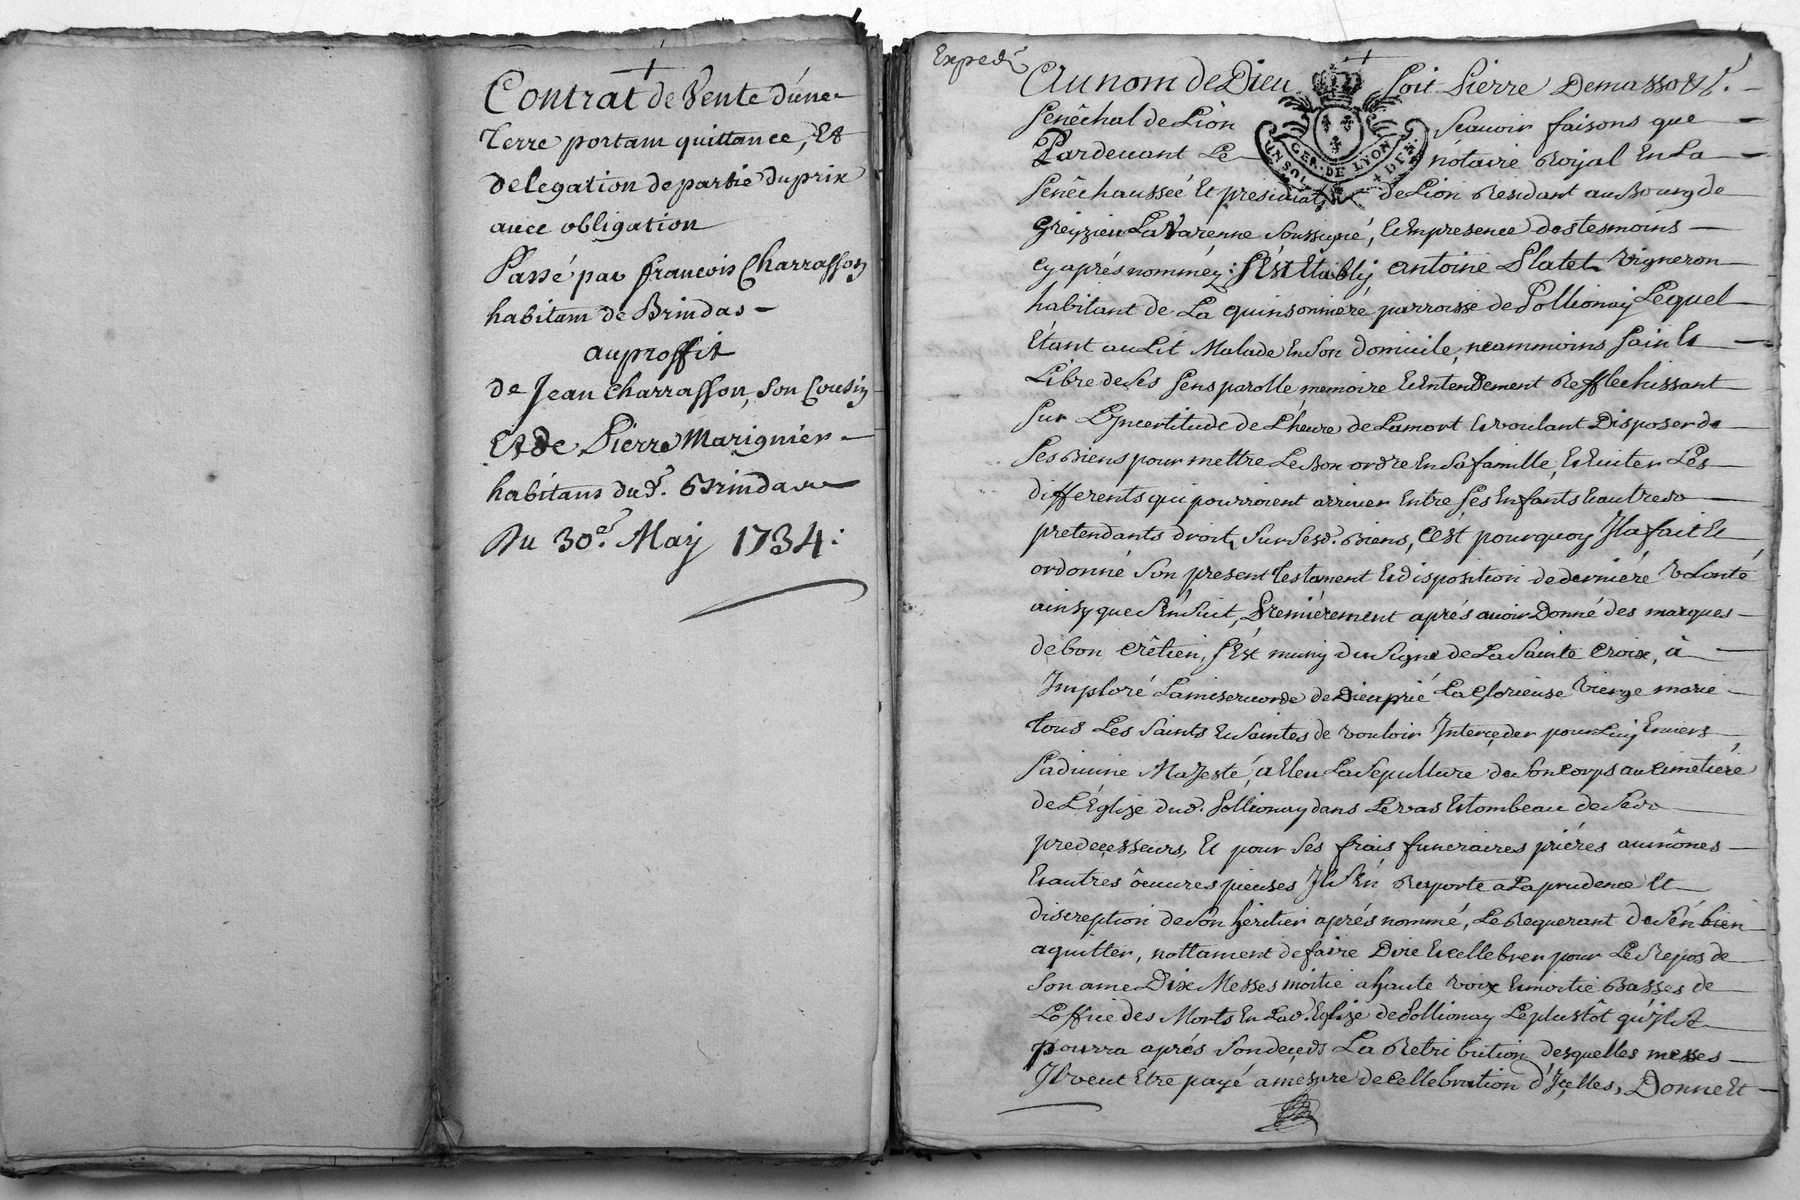 Contrat de Vente d'une
Terre portant quittance, Et
delegation de partie du prix
avec obligation
Passé par françois Charrasson
habitant de Brindas
au proffit
de Jean Charrasson, son Cousin
Et de Pierre Marignier
habitans dud. Brindas
Du 30e. May 1734:
Exped.
Au nom de Dieu Soit Pierre Demasso
Senêchal de Lion Scavoir faisons que
Pardevant Le nótaire Royal En La
Senêchausseé Et presidial de Lion Residant au Bourg de
Greyzieu La Varenne Soussigné, Et En presence des tesmoins
cy aprés nomméz: S'Est Etably antoine Platet Vigneron
habitant de La quinsonniere parroisse de Pollionay Lequel
Etant au Lit Malade En Son domicile, neammoins Sain Et
Libre de Ses Sens parolle memoire Et Entendement Refflechissant
Sur L'Incertitude de L'heure de La mort Et voulant Disposer de
Ses Biens pour mettre Le Bon ordre En Sa famille, Et Eviter Les
differents qui pourroient arriver Entre Ses Enfants Et autres
pretendants droit Sur Sesd. Biens, C'est pourquoy Il a fait Et
ordonné Son present testament Et disposition de derniére volonté
ainsy que S'En Suit, Premiérement aprés avoir Donné des marques
de bon Crêtien, S'Est muny du Signe de La Sainte Croix, à
Imploré La misericorde de Dieu prié La Glorieuse Vierge marie
tous Les Saints Et Saintes de vouloir Interceder pour Luy Envers
Sa divine Majesté, a Eleu La Sepulture de Son Corps au Cimetiére
de L'Eglize dud. Pollionay dans Le vas Et tombeau de Ses
predecesseurs, Et pour Ses frais funeraires priéres aumônes
Et autres oeuvres pieuses Il S'En Raporte a La prudence Et
discreption de Son héritier aprés nommé, Le Requerant de S'En bien
aquitter, nottament de faire Dire Et Cellebrer pour Le Repos de
Son ame Dix Messes moitié a haute voix Et moitié Basses de
L'office des Morts En Lad. Eglize de Pollionay Le plustôt qu'il Se
pourra aprés Son decéds La Retribution desquelles messes
Il veut Etre payé a mesure de Cellebration d'Icelles, Donne Et
GEN. DE LYON
UN SOL
DEN.